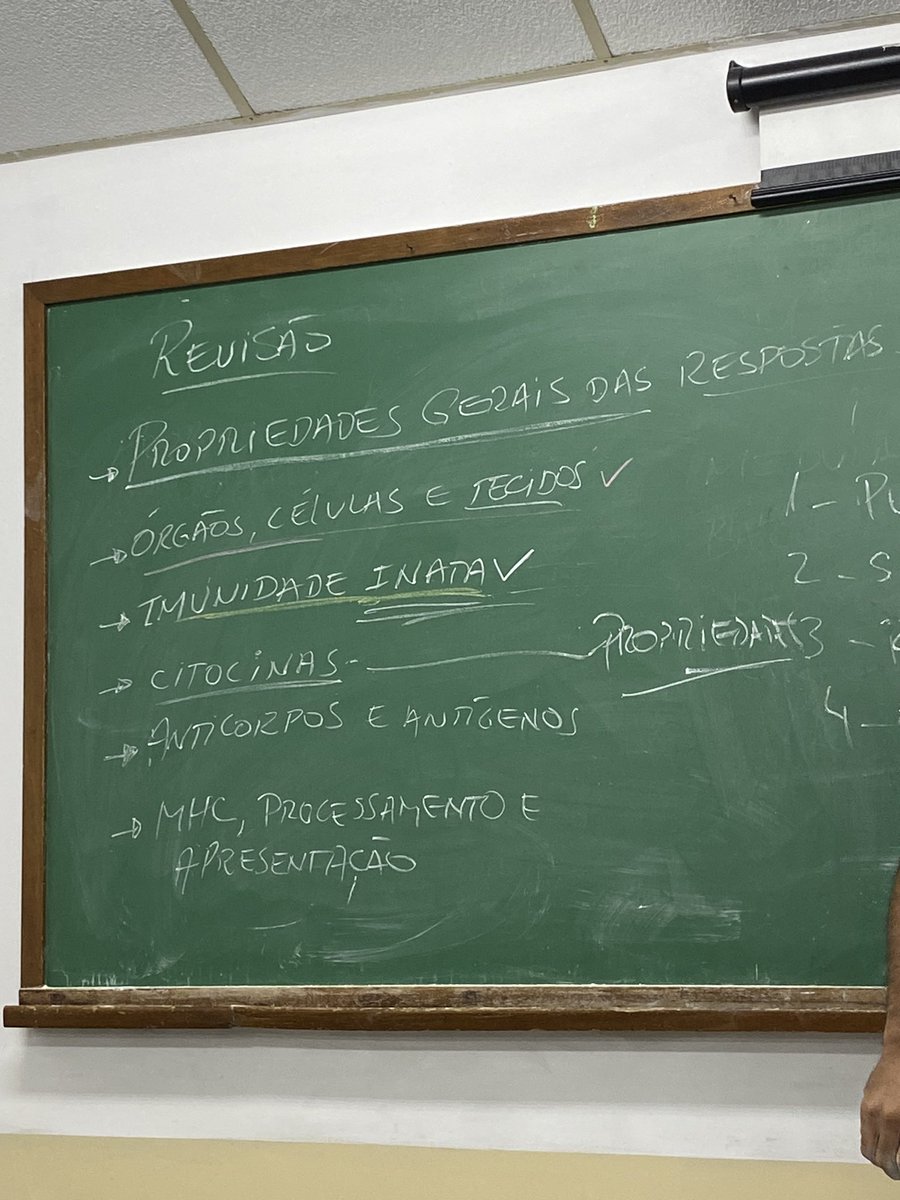 REVISÃO
→ PROPRIEDADES GERAIS DAS RESPOSTAS
→ ÓRGÃOS, CÉLULAS E TECIDOS ✓
→ IMUNIDADE INATA ✓
→ CITOCINAS - PROPRIEDADES
→ ANTICORPOS E ANTÍGENOS
→ MHC, PROCESSAMENTO E
APRESENTAÇÃO
1 -
2 - S
3 -
4 -